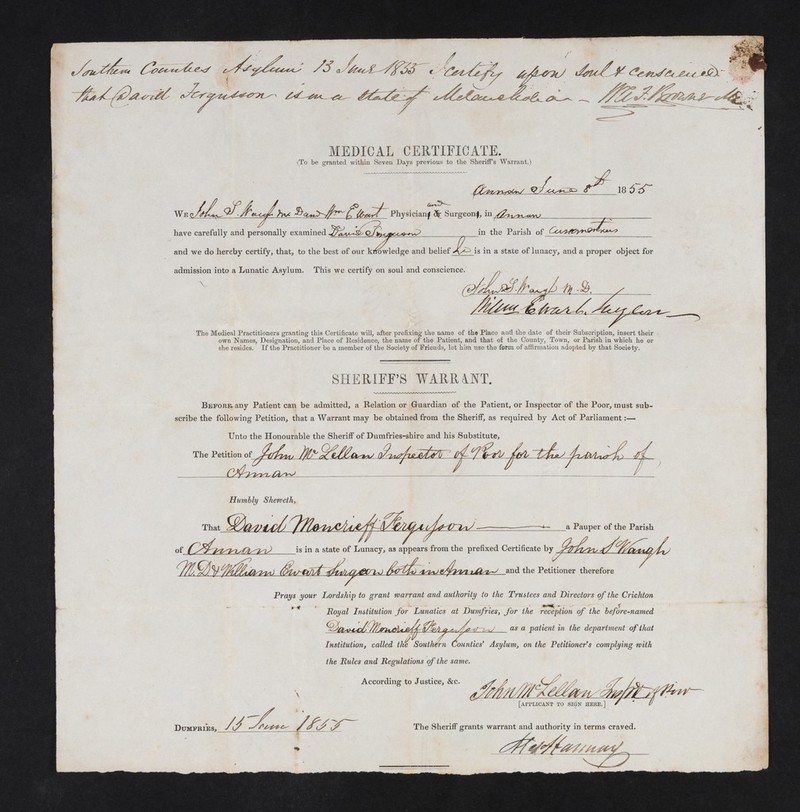 Southern Counties Asylum 13 June 1855 I certify upon soul & conscience
that David Fergusson is in a state of Melancholia - W. A. F. Browne
MEDICAL CERTIFICATE.
(To be granted within Seven Days previous to the Sheriff's Warrant.)
Annan June 8th 1855
We John S Waugh M D and Wm Ewart Physician and Surgeon, in Annan
have carefully and personally examined David Ferguson in the Parish of
and we do hereby certify, that, to the best of our knowledge and belief he is in a state of lunacy, and a proper object for
admission into a Lunatic Asylum. This we certify on soul and conscience.
John S. Waugh M.D.
William Ewart, Surgeon
The Medical Practitioners granting this Certificate will, after prefixing the name of the Place and the date of their Subscription, insert their
own Names, Designation, and Place of Residence, the name of the Patient, and that of the County, Town, or Parish in which he or
she resides. If the Practitioner be a member of the Society of Friends, let him use the form of affirmation adopted by that Society.
SHERIFF'S WARRANT.
Before any Patient can be admitted, a Relation or Guardian of the Patient, or Inspector of the Poor, must sub-
scribe the following Petition, that a Warrant may be obtained from the Sheriff, as required by Act of Parliament:—
Unto the Honourable the Sheriff of Dumfries-shire and his Substitute,
The Petition of John McLellan Inspector of Poor for the parish of
Annan
Humbly Sheweth,
That David Moncrieff Fergusson a Pauper of the Parish
of Annan is in a state of Lunacy, as appears from the prefixed Certificate by John S Waugh
M.D & William Ewart Surgeon both in Annan and the Petitioner therefore
Prays your Lordship to grant warrant and authority to the Trustees and Directors of the Crichton
Royal Institution for Lunatics at Dumfries, for the reception of the before-named
David Moncrieff Fergusson as a patient in the department of that
Institution, called the Southern Counties' Asylum, on the Petitioner's complying with
the Rules and Regulations of the same.
According to Justice, &c.
John McLellan Inspr of Poor
[APPLICANT TO SIGN HERE.]
Dumfries, 15 June 1855 The Sheriff grants warrant and authority in terms craved.
Hannay